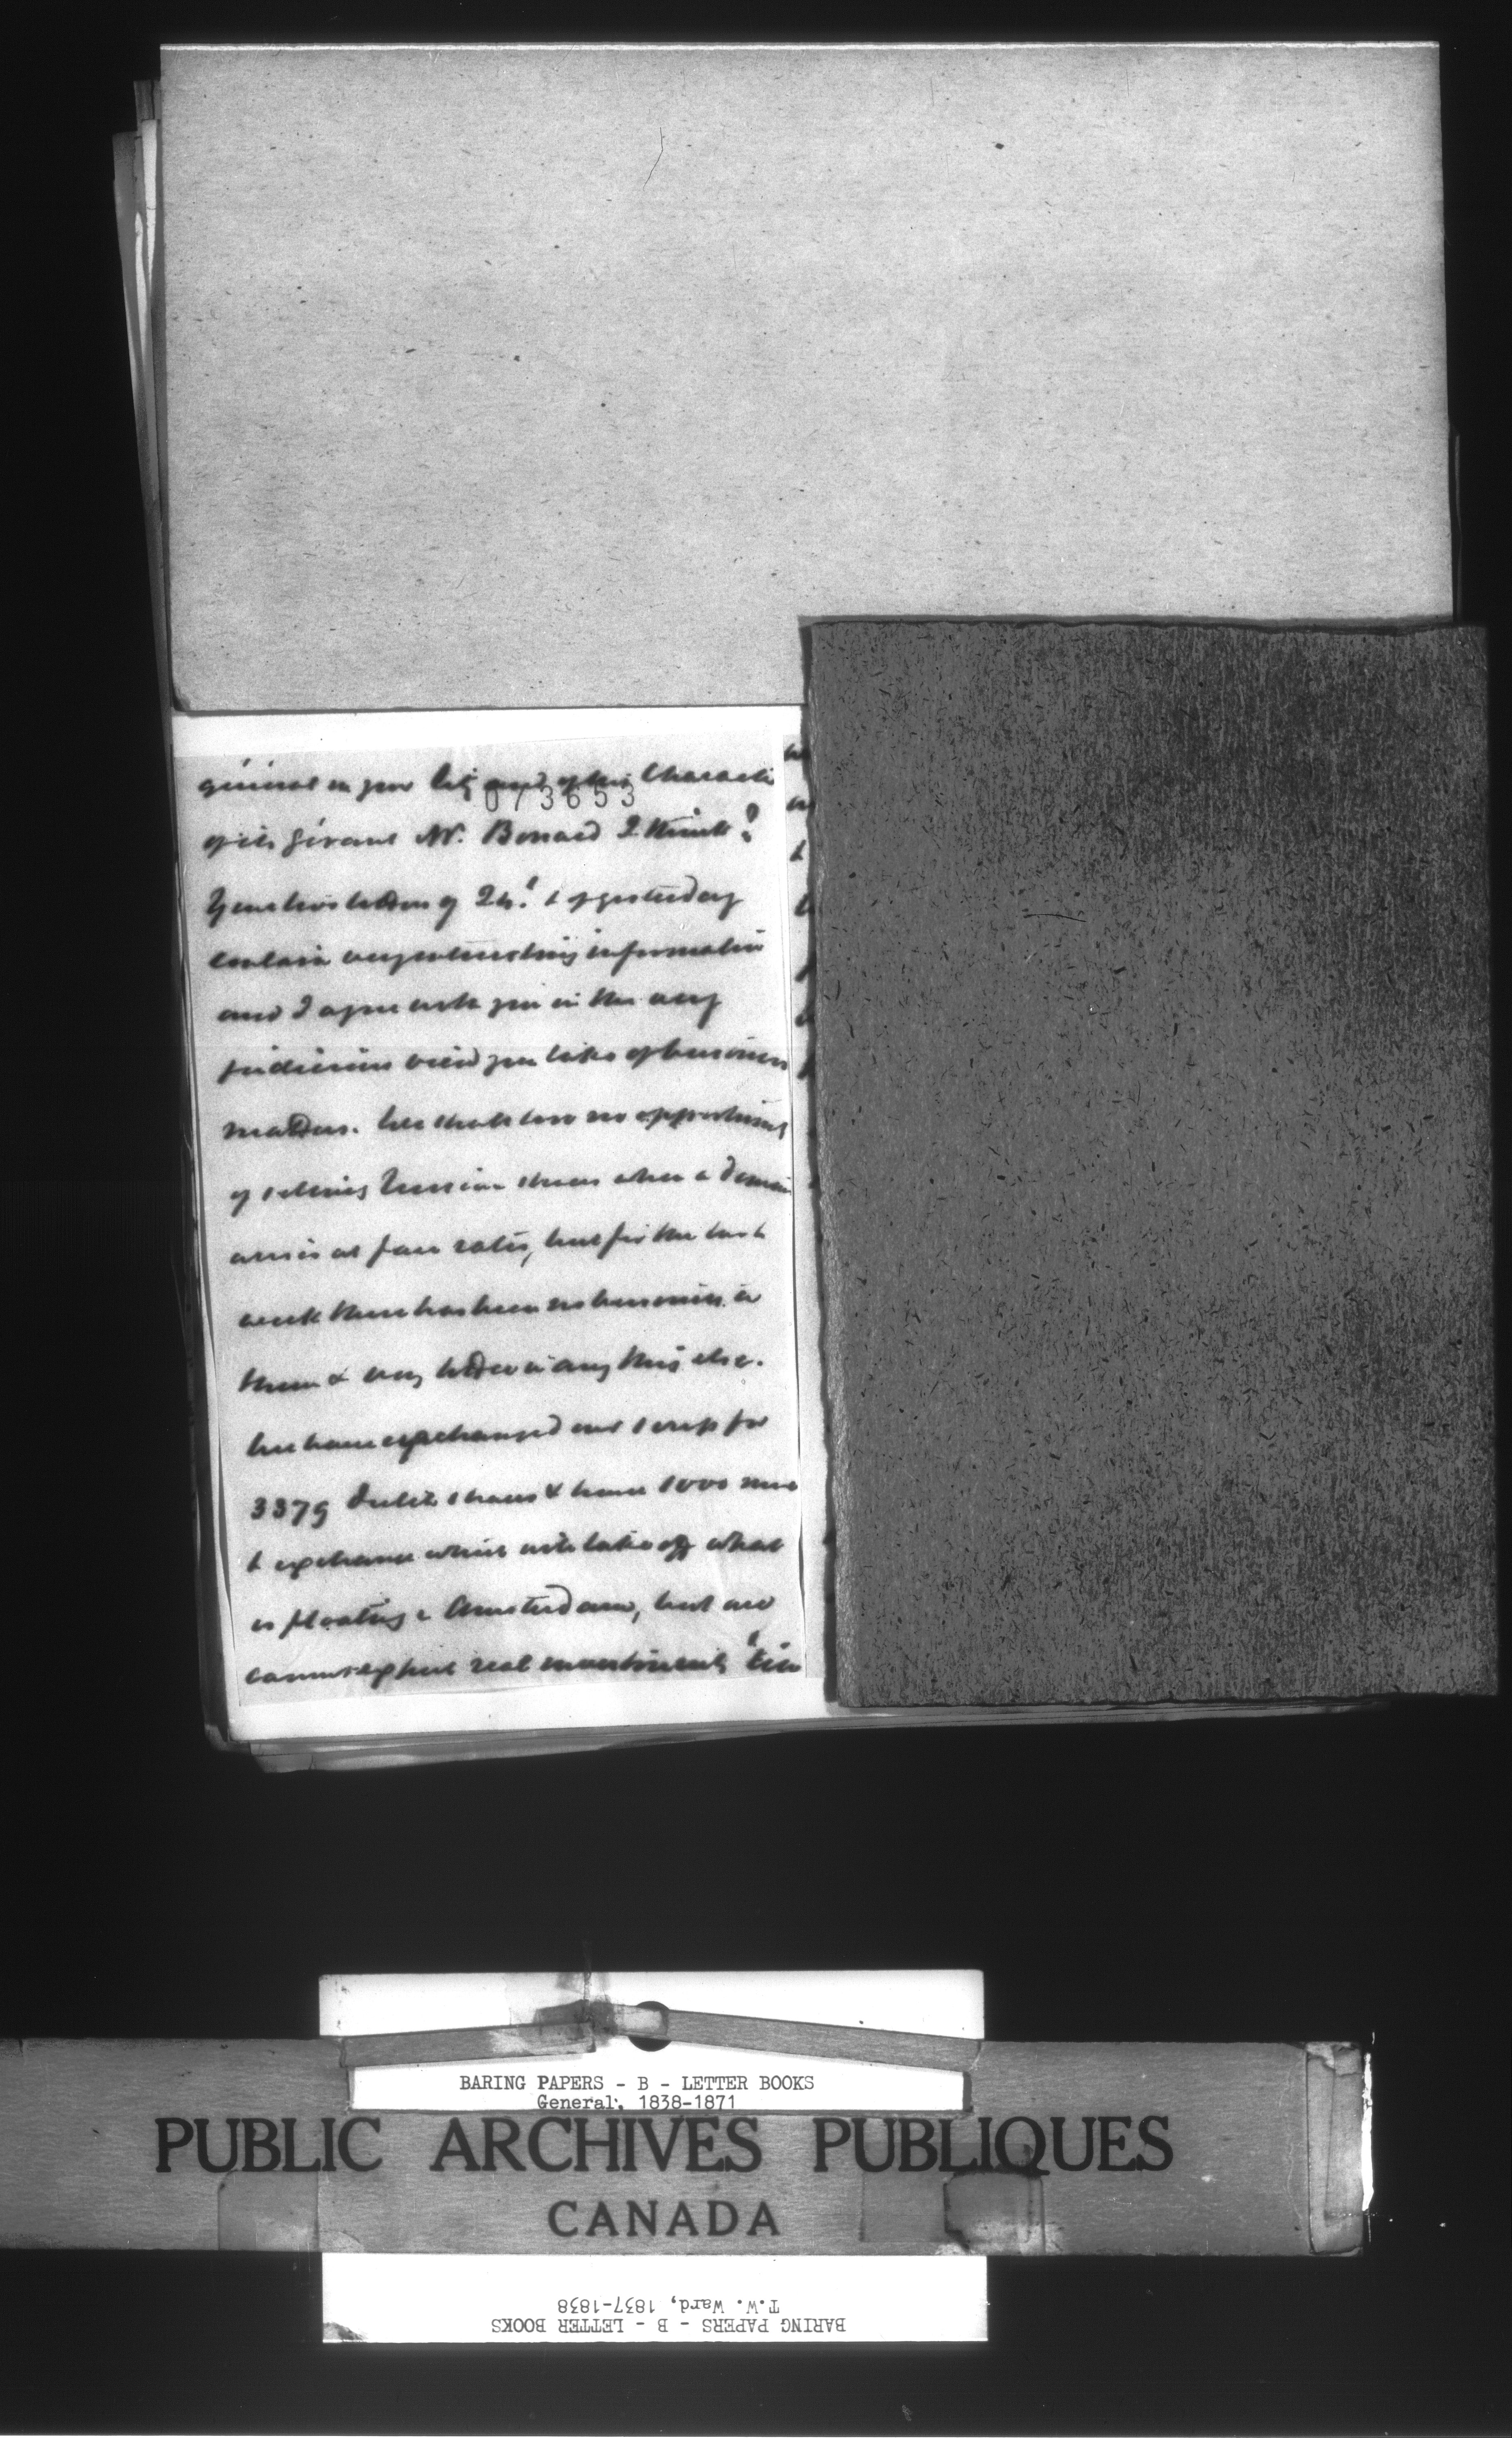 général in your city and of the Character
073653
of its Gérant Mr. Bonard I think?
Your two letters of 24. & of yesterday
contain very interesting information
and I agree with you in the very
judicious view you take of business
matters. We shall lose no opportunity
of selling Russian shares when a demand
arises at fair rates, but for the last
week there has been no business in
them & very little in any thing else.
We have exchanged our scrip for
3379 shares & have 1000 more
to exchange which will take off what
is floating in Amsterdam, but we
cannot expect real investments
BARING PAPERS - B - LETTER BOOKS
General, 1838-1871
PUBLIC ARCHIVES PUBLIQUES
CANADA
BARING PAPERS - B - LETTER BOOKS
T.W. Ward, 1837-1838